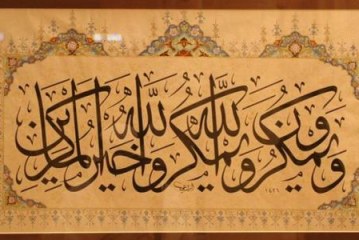 ويمكرون ويمكر الله والله خير الماكرين